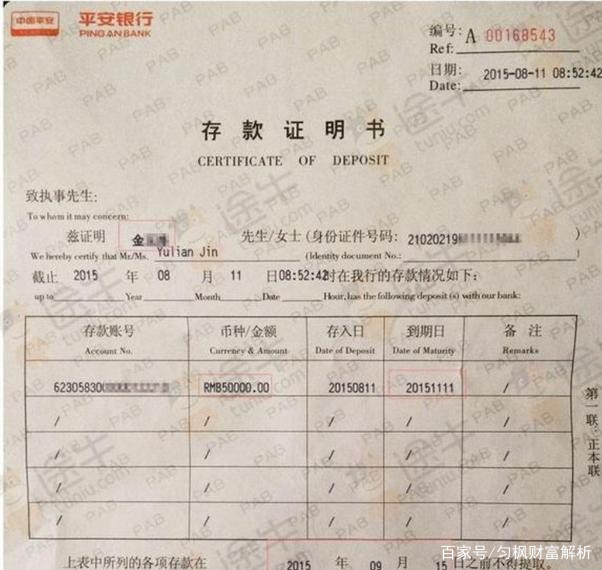 中国平安 平安银行
PING AN BANK
编号: A 00168543
Ref:
日期: 2015-08-11 08:52:42
Date:
存款证明书
CERTIFICATE OF DEPOSIT
致执事先生:
To whom it may concern:
兹证明 金 先生/女士(身份证件号码: 21020219
We hereby certify that Mr/Ms. Yulian Jin (Identity document No.:
截止 2015 年 08 月 11 日08:52:42时在我行的存款情况如下:
up to Year Month Date Hour, has the following deposit (s) with our bank:
存款账号 币种/金额 存入日 到期日 备 注
Account No. Currency & Amount Date of Deposit Date of Maturity Remarks
62305830 RMB50000.00 20150811 20151111 /
/ / / / /
/ / / / /
/ / / / /
/ / / / /
第一联:正本联
上表中所列的各项存款在 2015 年 09 月 15 日之前不得提取。
途牛
tuniu.com
PAB
百家号/匀枫财富解析